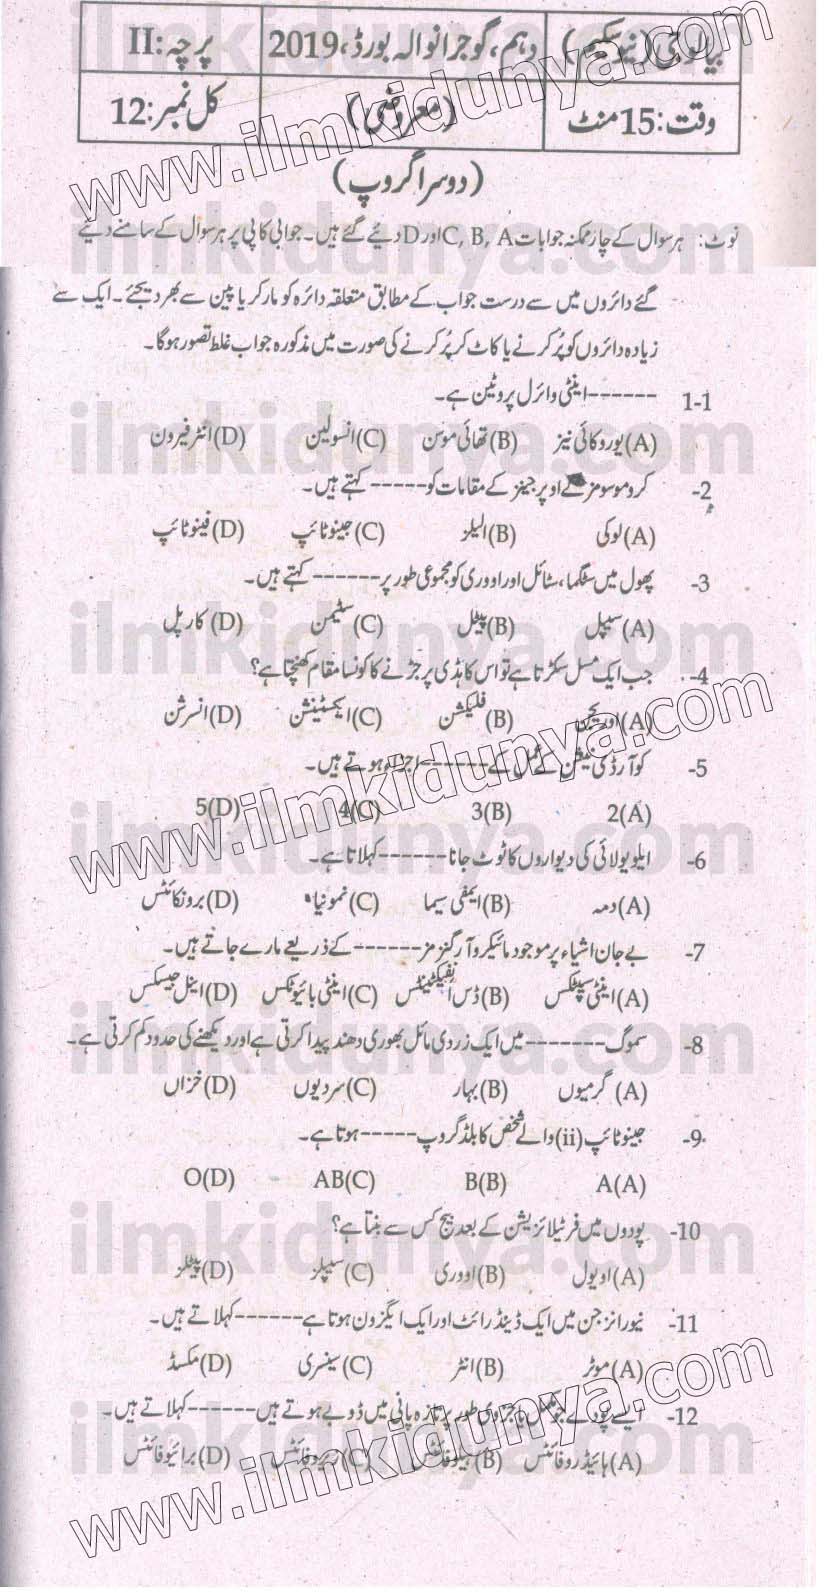 بیالوجی (نیو سکیم) دہم، گوجرانوالہ بورڈ، 2019 پرچہ: II
وقت: 15 منٹ (معروضی) کل نمبر: 12
(دوسرا گروپ)
نوٹ: ہر سوال کے چار ممکنہ جوابات C, B, A اور D دیئے گئے ہیں۔ جوابی کاپی پر ہر سوال کے سامنے دیئے
گئے دائروں میں سے درست جواب کے مطابق متعلقہ دائرہ کو مارکر یا پین سے بھر دیجئے۔ ایک سے
زیادہ دائروں کو پُر کرنے یا کاٹ کر پُر کرنے کی صورت میں مذکورہ جواب غلط تصور ہوگا۔
1-1 ------ اینٹی وائرل پروٹین ہے۔
(A) یوروکائی نیز (B) تھائی موسن (C) انسولین (D) انٹرفیرون
2- کروموسومز کے اوپر جینز کے مقامات کو ----- کہتے ہیں۔
(A) لوکی (B) الیلز (C) جینوٹائپ (D) فینوٹائپ
3- پھول میں سٹگما، سٹائل اور اووری کو مجموعی طور پر ------ کہتے ہیں۔
(A) سیپل (B) پیٹل (C) سٹیمن (D) کارپل
4- جب ایک مسل سکڑتا ہے تو اس کا ہڈی پر جڑنے کا کونسا مقام کھنچتا ہے؟
(A) اوریجن (B) فلیکشن (C) ایکسٹینشن (D) انسرشن
5- کوآرڈی نیشن کے عمل کے ------ اجزاء ہوتے ہیں۔
2(A) 3(B) 4(C) 5(D)
6- ایلویولائی کی دیواروں کا ٹوٹ جانا ------ کہلاتا ہے۔
(A) دمہ (B) ایمفی سیما (C) نمونیا (D) برونکائٹس
7- بے جان اشیاء پر موجود مائیکرو آرگنزمز ------ کے ذریعے مارے جاتے ہیں۔
(A) اینٹی سپٹکس (B) ڈس انفیکٹینٹس (C) اینٹی بائیوٹکس (D) اینل جیسکس
8- سموگ ------- میں ایک زردی مائل بھوری دھند پیدا کرتی ہے اور دیکھنے کی حدود کم کرتی ہے۔
(A) گرمیوں (B) بہار (C) سردیوں (D) خزاں
9- جینوٹائپ (ii) والے شخص کا بلڈ گروپ ----- ہوتا ہے۔
A(A) B(B) AB(C) O(D)
10- پودوں میں فرٹیلائزیشن کے بعد بیج کس سے بنتا ہے؟
(A) اویول (B) اووری (C) سیپلز (D) پیٹلز
11- نیورانز جن میں ایک ڈینڈرائٹ اور ایک ایگزون ہوتا ہے ------ کہلاتے ہیں۔
(A) موٹر (B) انٹر (C) سینسری (D) مکسڈ
12- ایسے پودے جو مکمل یا جزوی طور پر تازہ پانی میں ڈوبے ہوتے ہیں ------ کہلاتے ہیں۔
(A) ہائیڈروفائٹس (B) ہیلوفائٹس (C) زیروفائٹس (D) برائیوفائٹس
www.ilmkidunya.com
ilmkidunya.com
ilmkidunya.com
ilmkidunya.com
www.ilmkidunya.com
ilmkidunya.com
ilmkidunya.com
ilmkidunya.com
www.ilmkidunya.com
ilmkidunya.com